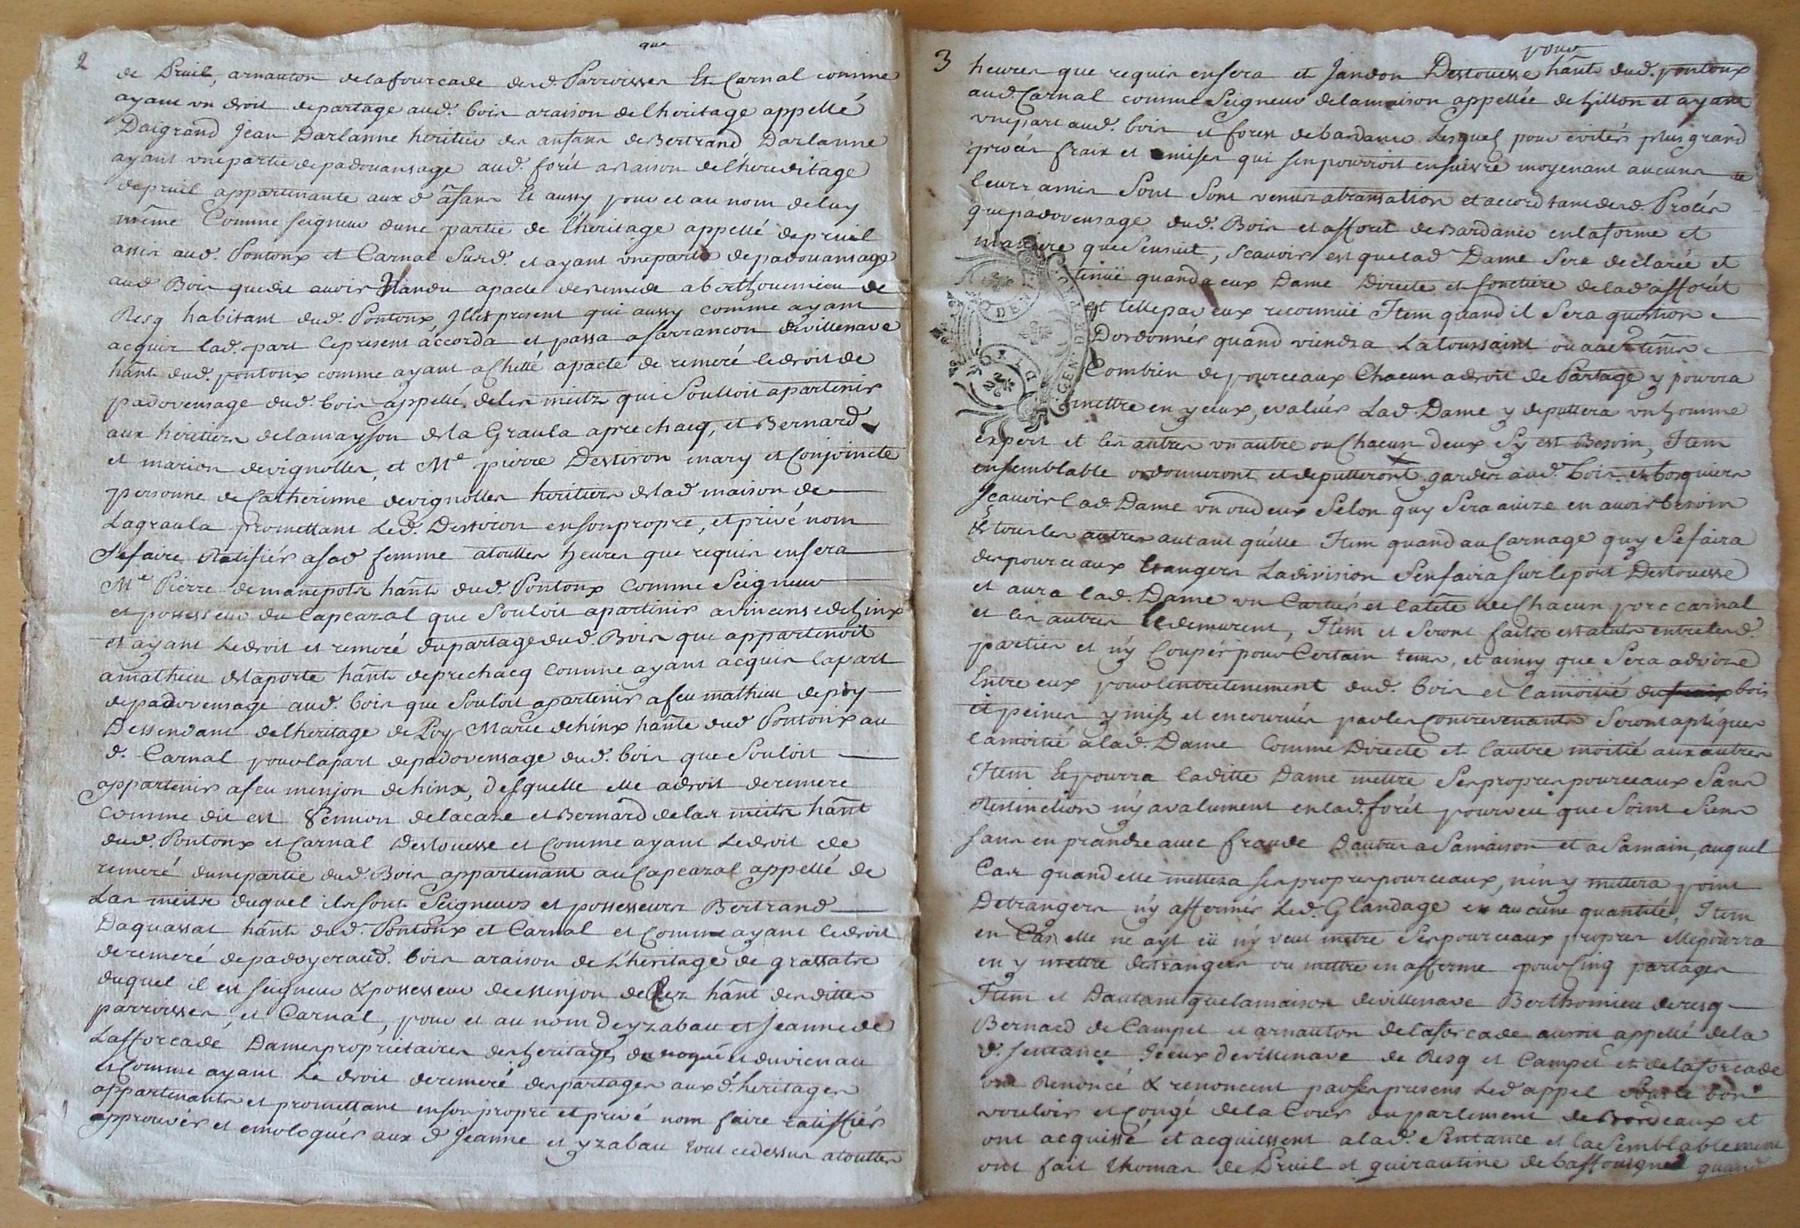 2
que
de Pruil, arnauton delafourcade de d. Parroisses Et Carnal comme
ayant un droit de partage aud. bois a raison de lheritage appellé
Daigrand Jean Darlanne heritier des anfans de Bertrand Darlanne
ayant une partie de padouansage aud. forêt a raison de lhereditage
de pruil appartenante aux d. Et aussy pour et au nom de luy
même Comme seigneur dune partie de lheritage appellé de pruil
assis aud. Pontonx et Carnal Surd. et ayant une part de padouansage
aud. Bois que dit avoir Vandu a pacte de remede a berthoumieu de
Resq habitant dud. Pontonx, Illes present qui aussy comme ayant
acquis lad. part le present accorda et passa a sarrancon de villenave
hant dud. pontonx comme ayant achetté a pacte de remeré le droit de
padovensage dud. bois appellé de les meitz qui Soulloit apartenir
aux heritiers de lamayson de la Graula a prechacq, et Bernard
et marion de vignolles, et Me pierre Destiron mary et Conjoincte
personne de Catherinne de vignolles heritiers de lad maison de
Lagraula promettant Le d. Destiron en son propre, et privé nom
faire Ratifier a sad femme a touttes heures que requis en sera
Me Pierre de manepotx hant dud. Pontonx Comme Seigneur
et possesseur du Capcazal que Souloit apartenir a vincens de hinx
et ayant Le droit et remeré du partage dud. Bois que appartenoit
a mathieu de laporte hant de prechacq Comme ayant acquis la part
de padovensage aud. bois que Souloit apartenir a feu mathieu de poy
Dessendant de lheritage de Poy Marie de hinx hante dud Pontonx au
d. Carnal pour la part de padovensage dud. bois que Souloit
appartenir a feu menjon de hinx, de laquelle elle a droit de remere
Comme dit est de lacaze et Bernard de las meits hant
dud. Pontonx et Carnal Destouesse et Comme ayant Le droit de
remeré dune partie dud. Bois appartenant au Capcazal appellé de
Las meits duquel ils sont Seigneurs et possesseurs Bertrand
Daquassat hant dud. Pontonx et Carnal et Comme ayant le droit
de remeré de padoyer aud. bois a raison de Lheritage de grassatte
duquel il est seigneur & possesseur de menjon de Rez hant des dittes
parroisses, et Carnal, pour et au nom dyzabau et Jeanne de
Lafforcade Dames propriétaires des heritages
et Comme ayant Le droit de remeré des partages aux d. heritages
appartenants et promettant en son propre et privé nom faire ratiffier
approuver et emologuer aux d. Jeanne et yzabau tout ce dessus a touttes
3
pour
heures que requis en sera et Jandon Destouesse hant dud. pontonx
aud. Carnal comme Seigneur de la maison appellée de hillon et ayant
une part aud. bois et forest de bardanes Lesquels pour eviter plus grand
procès frais et mises qui sen pourroit ensuivre moyenant aucuns
leurs amis Sont Sont venus a transation et accord tant de d. Procès
que padovensage dud. Bois et afforest de Bardanes en la forme et
maniere que Sensuit, Scavoir est que lad Dame Sera declarée et
tenuë quand a eux Dame Directe et fonciere de lad afforêt
et telle par eux reconnuë Item quand il Sera question
Dordonner quand viendra La toussaint
Combien de pourceaux Chacun a droit de Partage y pourra
mettre en yeux, evalués Lad. Dame y deputtera un homme
expert et les autres un autre ou Chacun deux Sy est Besoin, Item
en semblable ordonneront et deputteront gardes aud. bois et bosquiers
Scavoir Lad Dame un ou deux Selon quy Sera avize en avoir besoin
& tous les autres autant quelle Item quand au Carnage quy Se faira
des pourceaux Etrangers La division Sen faira sur le port Destouesse
et aura lad. Dame un Cartier et la tête de Chacun porc carnal
et les autres le demurent, Item et Seront faits estatuts entre les d.
parties et n'y Couper pour Certain tems, et ainsy que Sera advizé
Entre eux pour lentretenement dud. bois et la moitié bois
et peines y mises et encourues par les Contrevenants Seront apliquées
la moitié a lad. Dame Comme Directe et lautre moitié aux autres
Item Et pourra laditte Dame mettre Ses propres pourceaux Sans
distinction n'y avalument en lad. forêt pourveu que Soint Siens
sans en prandre avec fraude Dautres a Sa maison et a Sa main, auquel
Cas quand elle mettera ses propres pourceaux, n'en y mettera point
Detrangers n'y affermer Led. Glandage en aucune quantité, Item
en Cas elle ne ayt eü n'y veut mettre Ses pourceaux propres elle pourra
en y mettre detrangers ou mettre en afferme pour Cinq partages
Item et Dautant que la maison de villenave Berthomieu de resq
Bernard de Campet et arnauton de laforcade auroit appellé de la
d. sentance Iceux de villenave de Resq et Campet et de laforcade
ont Renoncé & renoncent par Ses presens Led appel Sous le bon
vouloir et Congé de la Cour du parlement de Bordeaux et
ont acquissé et acquiessent a lad. Sentance et la Semblablement
ont fait thomas de Pruil et quirautine de quand